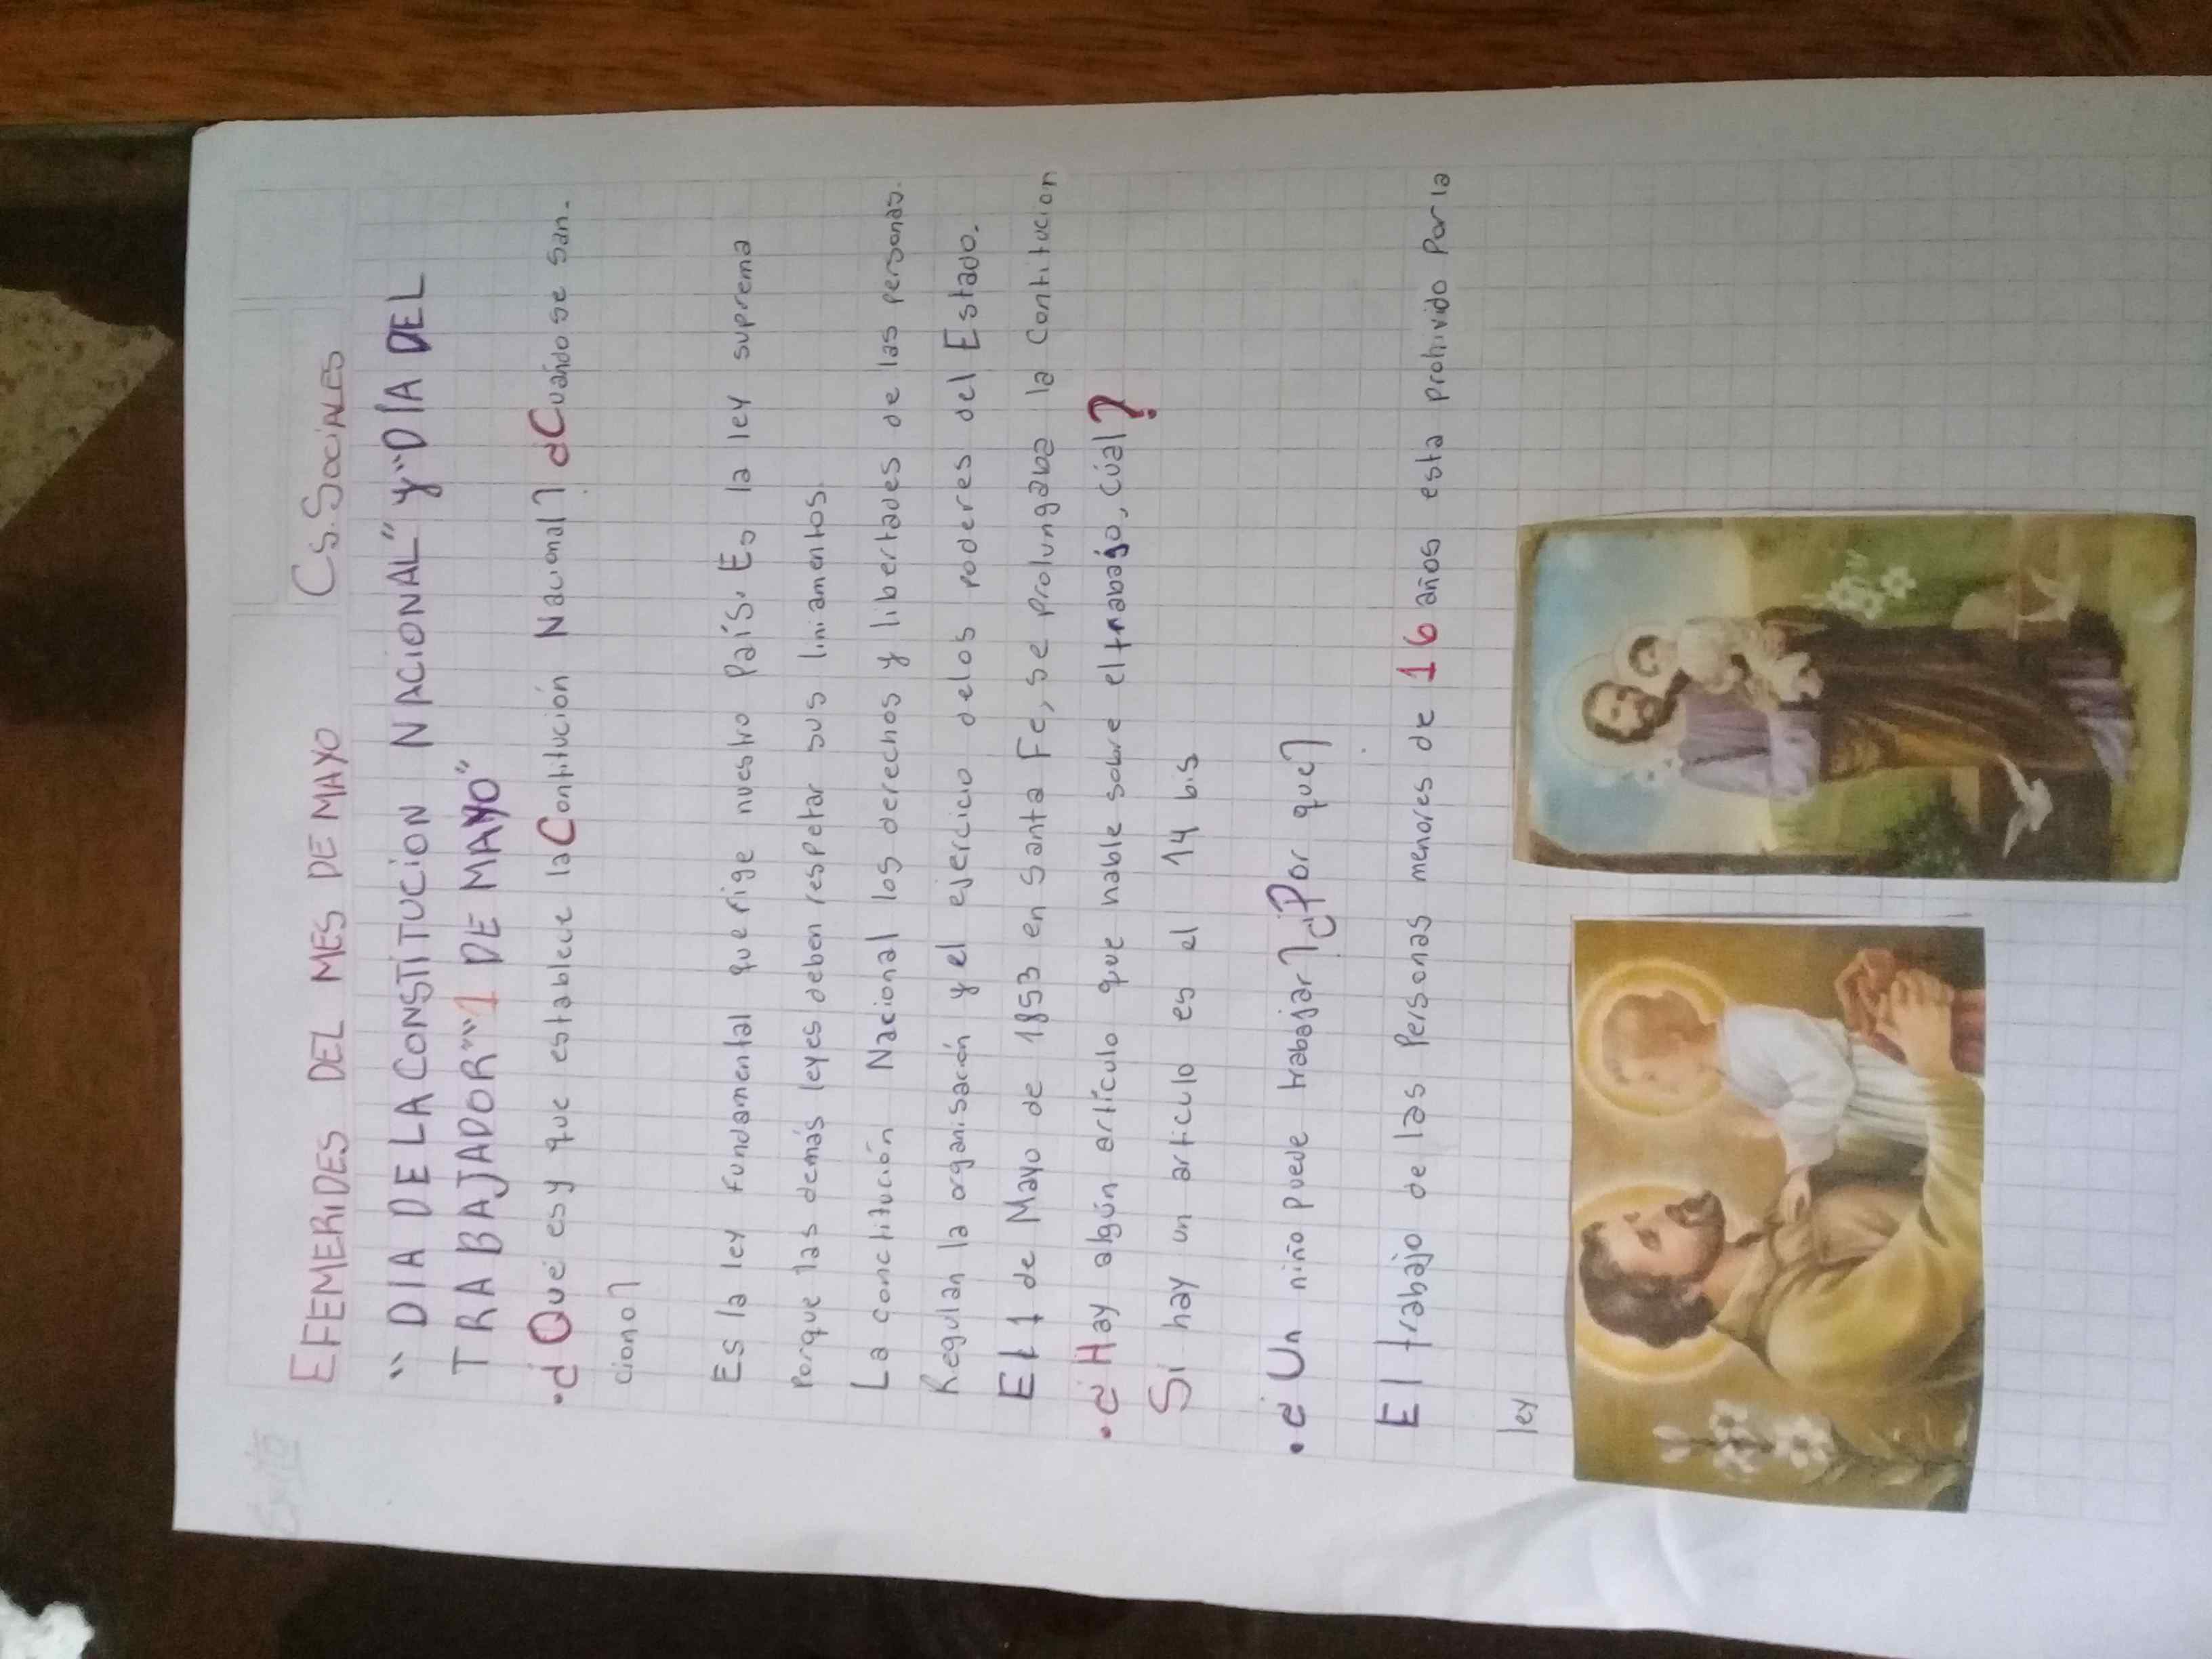 EFEMERIDES DEL MES DE MAYO C.S. SOCIALES
"DIA DE LA CONSTITUCION NACIONAL" y "DÍA DEL
TRABAJADOR" "1 DE MAYO"
• ¿Qué es y que establece la Contitución Nacional? ¿Cuándo se san-
ciono?
Es la ley fundamental que rige nuestro País. Es la ley suprema
Porque las demás leyes deben respetar sus liniamentos.
La conctitución Nacional los derechos y libertades de las personas.
Regulan la organisación y el ejercicio de los poderes del Estado.
El 1 de Mayo de 1853 en Santa Fe, se prolungaba la Contitucion
• ¿Hay algún artículo que hable sobre el trabajo, cúal?
Si hay un articulo es el 14 bis
• ¿Un niño puede trabajar? ¿Por que?
El trabajo de las Personas menores de 16 años esta prohivido Por la
ley